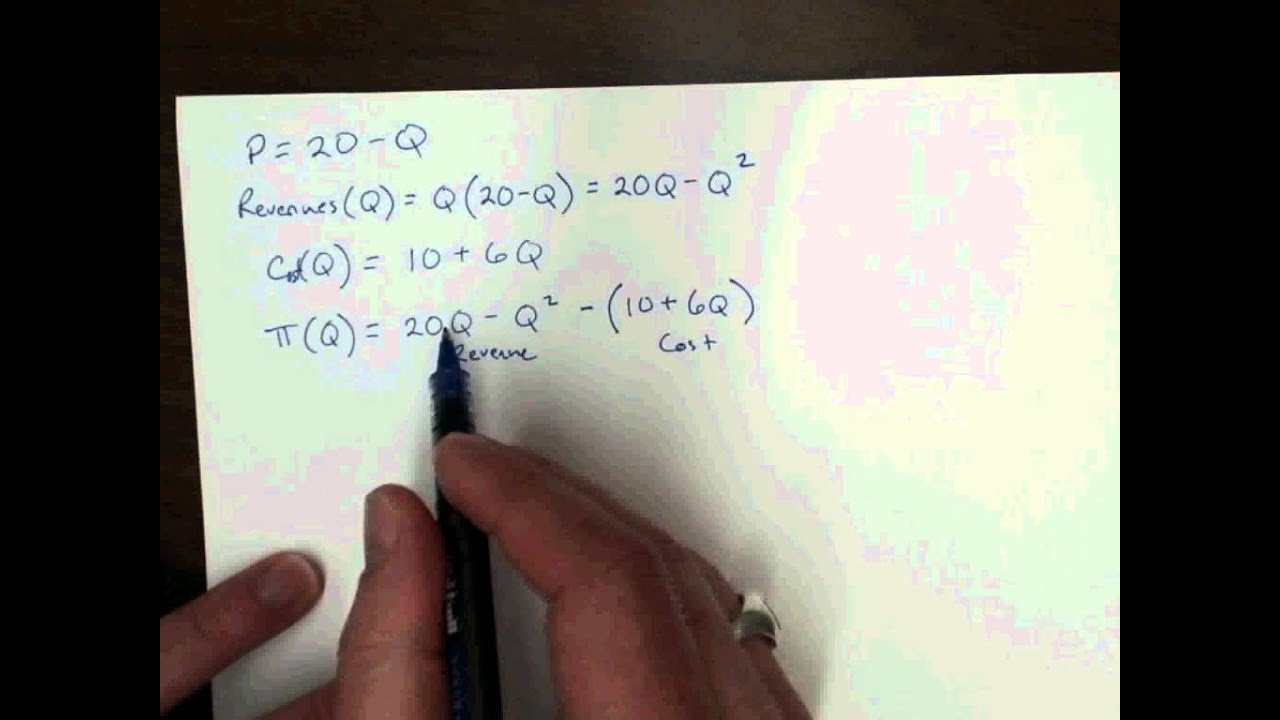 P = 20 - Q
Revenues(Q) = Q(20-Q) = 20Q - Q²
Cost(Q) = 10 + 6Q
π(Q) = 20Q - Q² - (10 + 6Q)
Revenue Cost